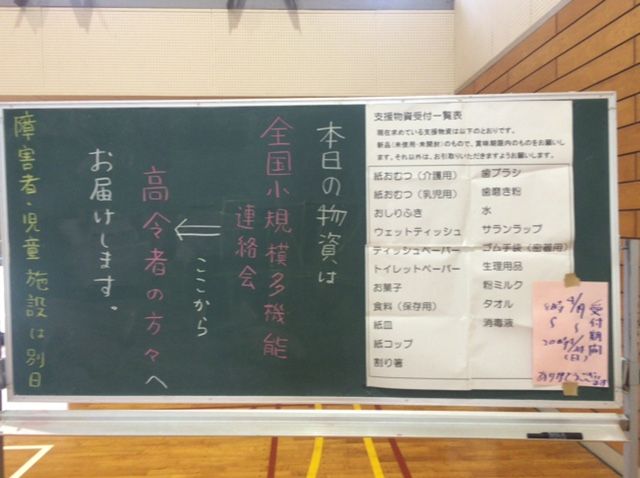 本日の物資は
全国小規模多機能
連絡会
ここから
高令者の方々へ
お届けします。
障害者・児童施設は別日
支援物資受付一覧表
現在求めている支援物資は以下のとおりです。
新品(未使用・未開封)のもので、賞味期限内のものをお願いし
ます。それ以外は、お引取りいただきますようお願いします。
紙おむつ(介護用)
紙おむつ(乳児用)
おしりふき
ウェットティッシュ
ティッシュペーパー
トイレットペーパー
お菓子
食料(保存用)
紙皿
紙コップ
割り箸
歯ブラシ
歯磨き粉
水
サランラップ
ゴム手袋(密着用)
生理用品
粉ミルク
タオル
消毒液
受付期間
(日)